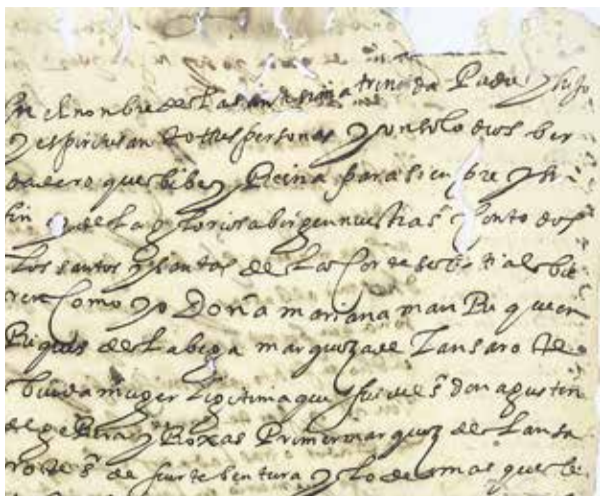 En el nonbre de La santisima trenida Padre y hijo
y espiritu santo tres personas y un solo dios ber
dadero que bibe y Reina para sienpre y sin
fin y de La gloriosa birgen nuestra sª y con todos
Los santos y santas de La Corte selestial sbie
ren Como yo Doña mariana manRique en
Riques de La bega marqueza de Lansarote
biuda muger Ligitima que fui del sʳ don agustin
de eRera y Roxas Primer marquez de Lansa
rote sʳ de fuerte bentura y Lo demas que le